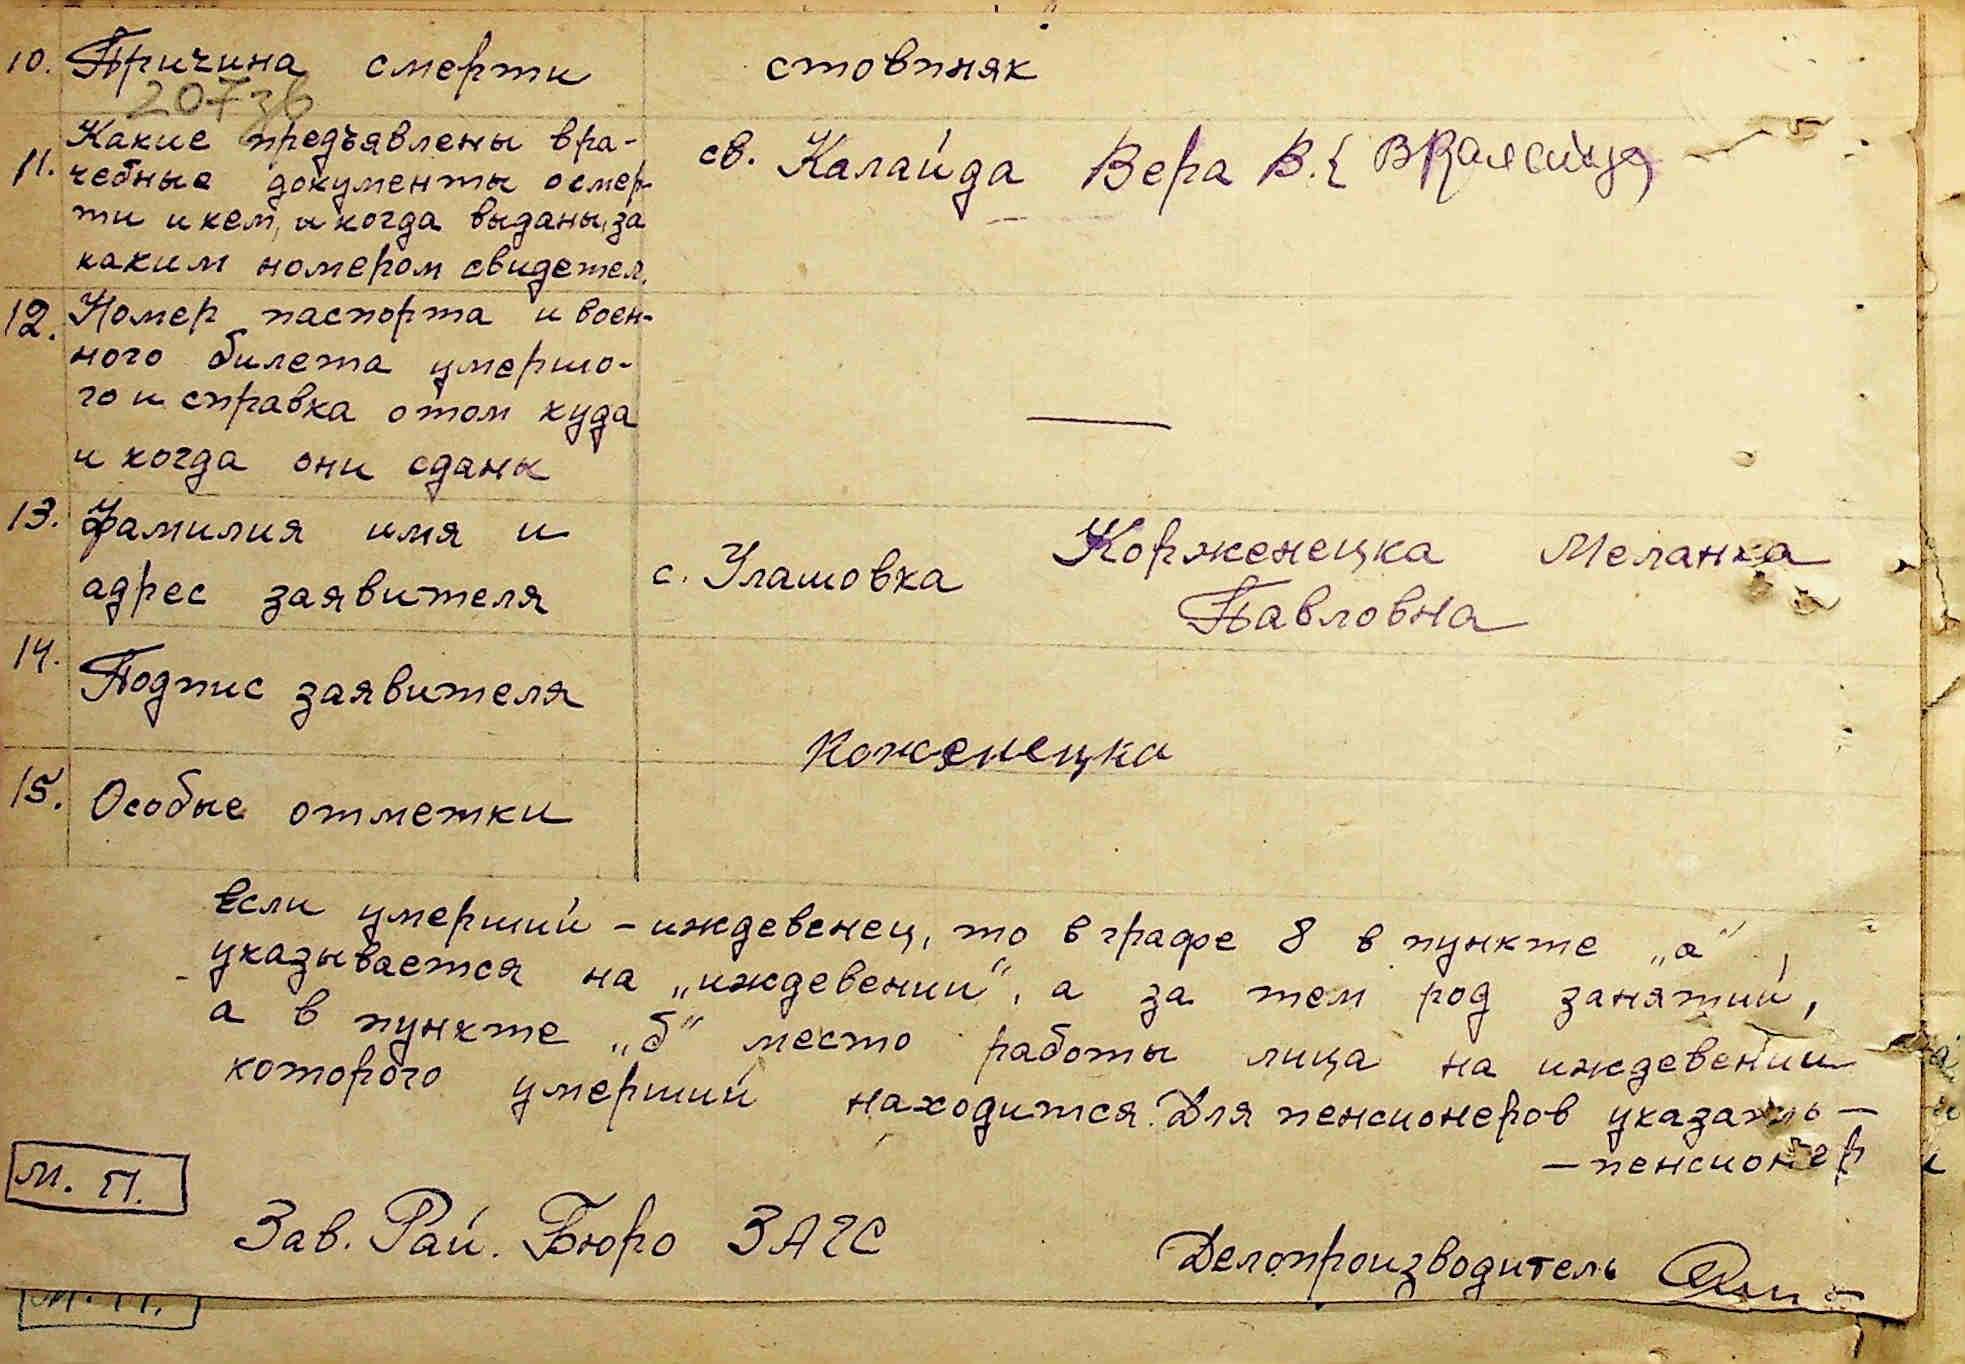 10. Причина смерти стовпняк
207зв
11. Какие предъявлены вра-
чебные документы о смер-
ти и кем, и когда выданы, за
каким номером свидетел.
св. Калайда Вера В.
12. Номер паспорта и воен-
ного билета умершо-
го и справка о том куда
и когда они сданы
—
13. Фамилия имя и
адрес заявителя
с. Улашовка Корженецка Меланка
Павловна
14. Подпис заявителя
Коженецка
15. Особые отметки
Если умерший - иждевенец, то в графе 8 в пункте „а“,
указывается на „иждевении“, а за тем род занятий,
а в пункте „б“ место работы лица на иждевении
которого умерший находится. Для пенсионеров указать —
— пенсионер
М. П.
Зав. Рай. Бюро ЗАГС
Делопроизводитель
М. П.